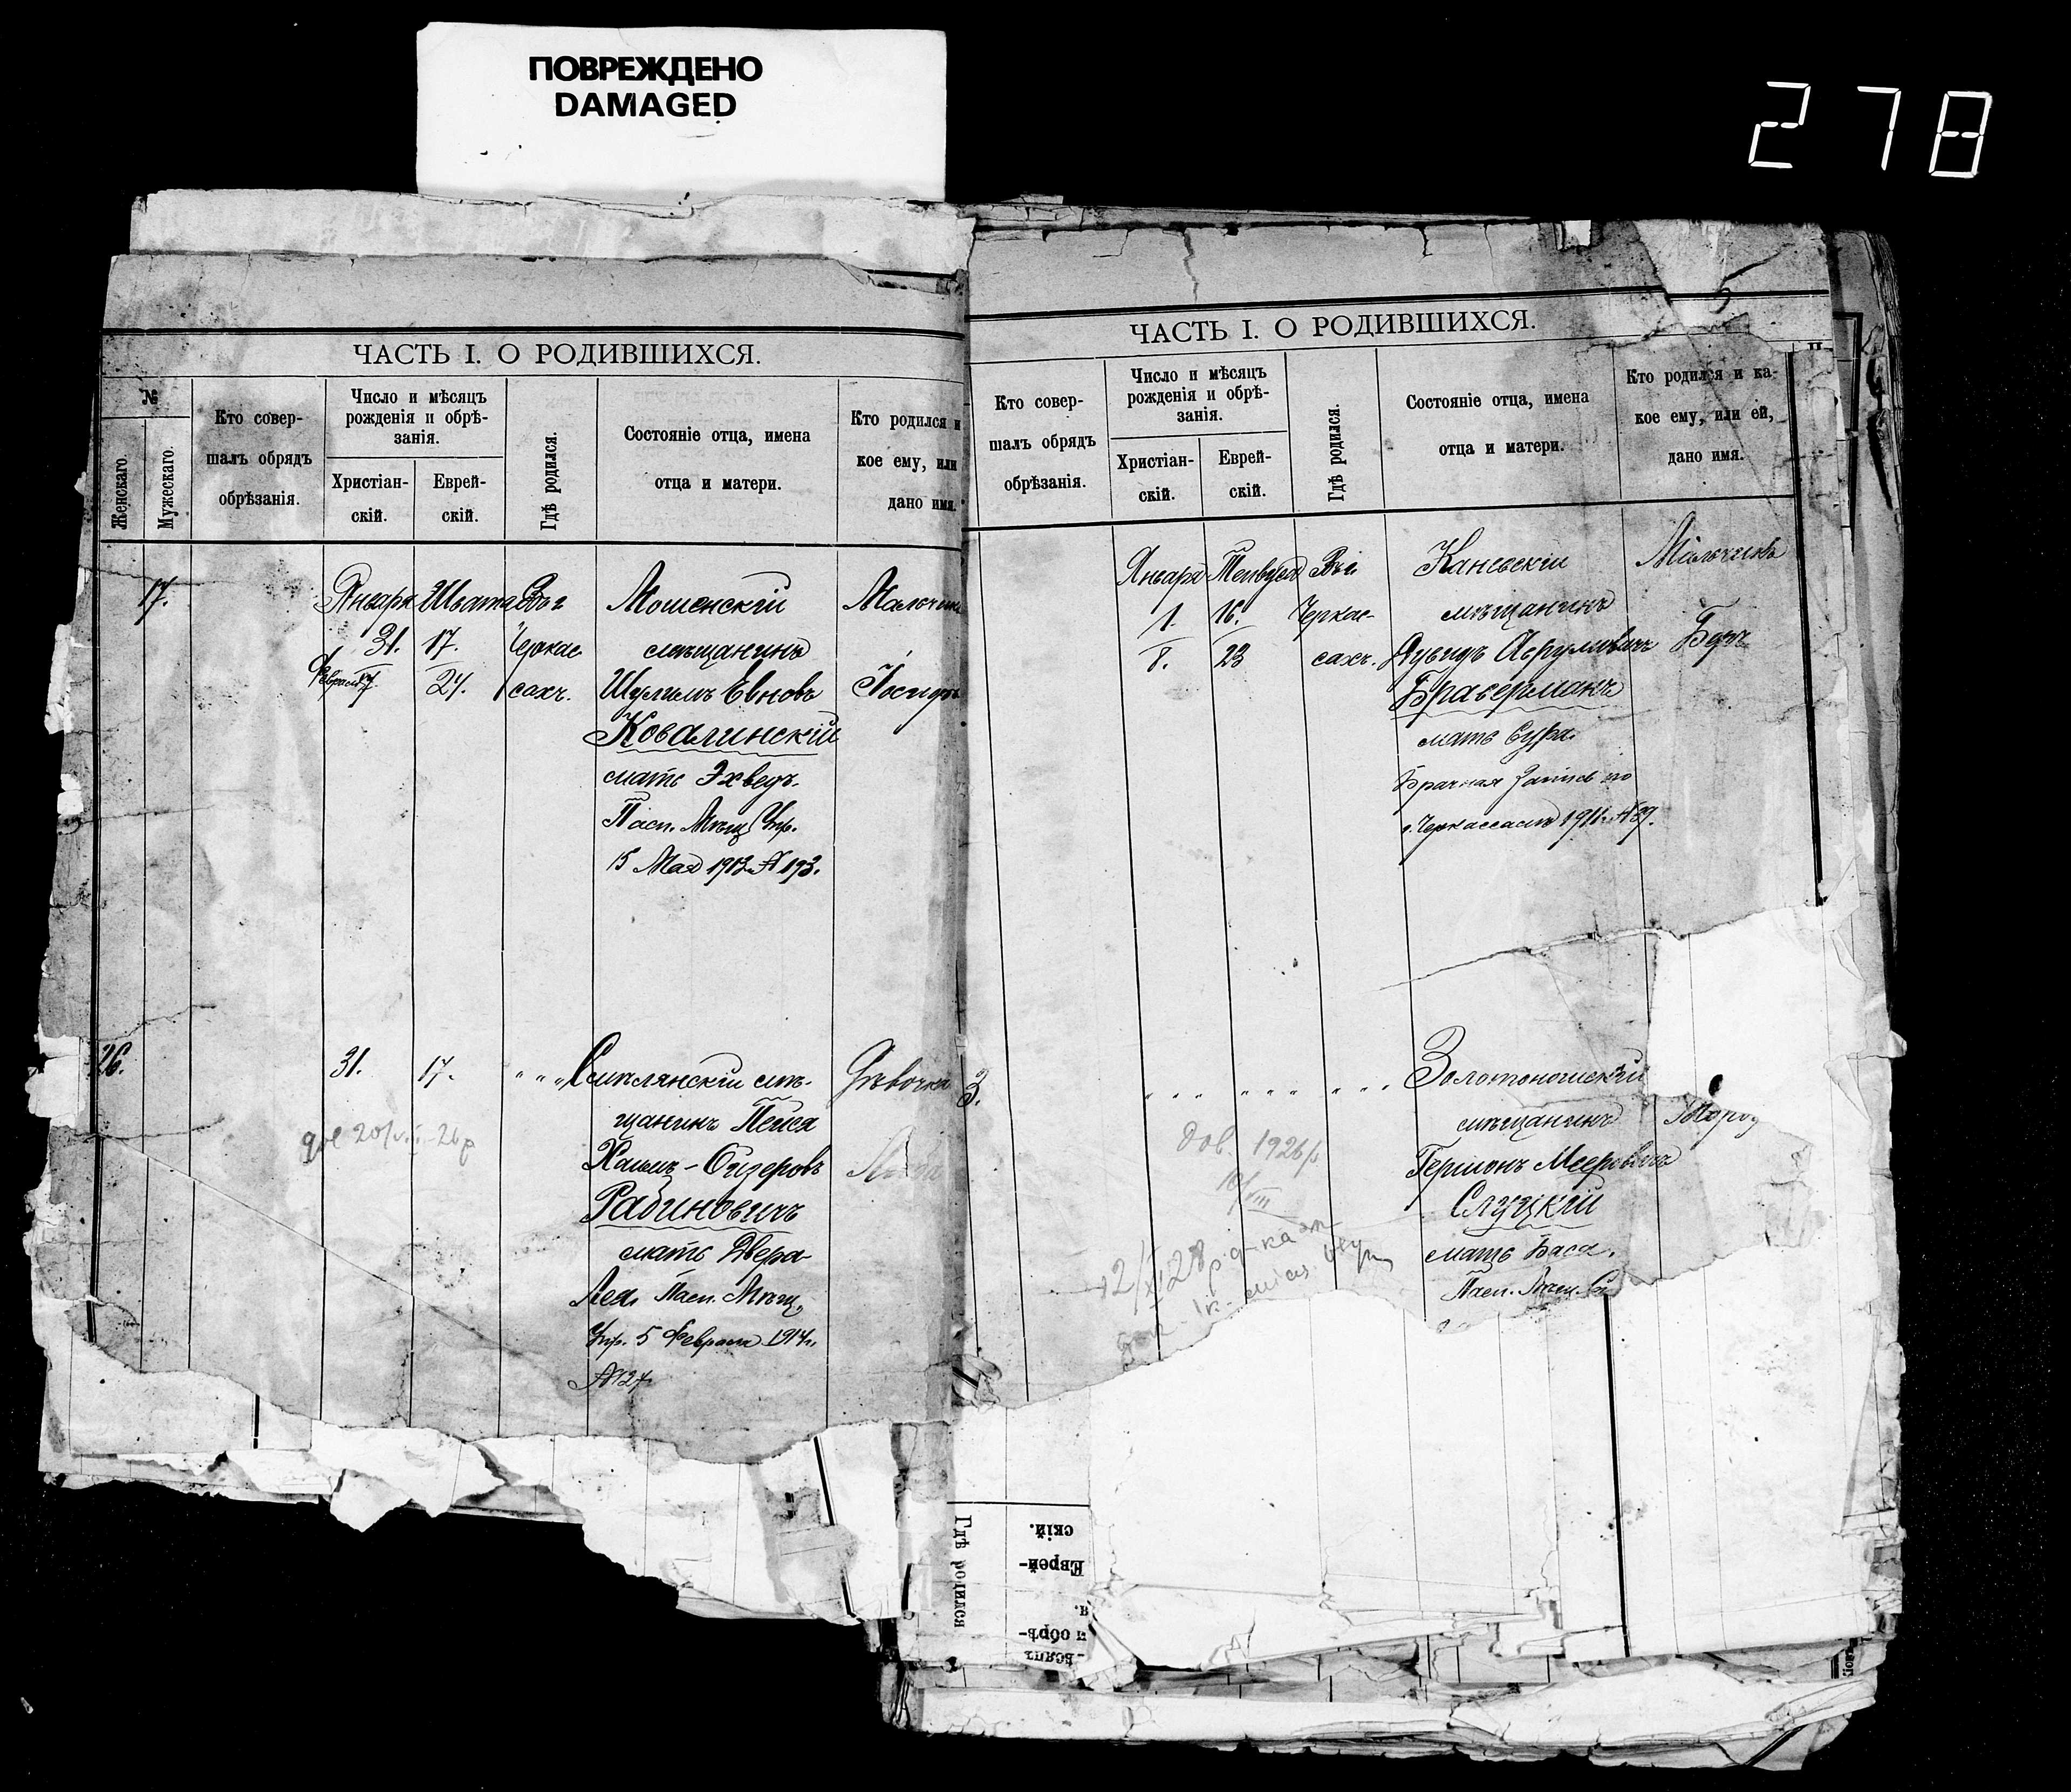 ПОВРЕЖДЕНО
DAMAGED
278
ЧАСТЬ I. О РОДИВШИХСЯ.
№
Женскаго.
Мужескаго.
Кто совер-
шалъ обрядъ
обрѣзанія.
Число и мѣсяцъ
рожденія и обрѣ-
занія.
Христіан-
скій.
Еврей-
скій.
Гдѣ родился.
Состояніе отца, имена
отца и матери.
Кто родился и
кое ему, или
дано имя.
17.
Января
31.
Февраля 7
Швата
17.
24.
Въ г
Черкас
сахъ.
Мошенскій
мѣщанинъ
Шулимъ Евновъ
Ковалинскій
мать Эхведъ.
Пасп. Мѣщ. Упр.
15 Мая 1913 г. № 193.
Мальчикъ
Іосифъ
26.
31.
17.
" " "
Смѣлянскій мѣ-
щанинъ Пейся
Хаимъ-Ойзеровъ
Рабиновичъ
мать Двера
Лея. Пасп. Мѣщ.
Упр. 5 Февраля 1914 г.
№ 127
Дѣвочка
ЧАСТЬ I. О РОДИВШИХСЯ.
Кто совер-
шалъ обрядъ
обрѣзанія.
Число и мѣсяцъ
рожденія и обрѣ-
занія.
Христіан-
скій.
Еврей-
скій.
Гдѣ родился.
Состояніе отца, имена
отца и матери.
Кто родился и ка-
кое ему, или ей,
дано имя.
Января
1.
8.
Тейвуса
16.
23
Въ г.
Черкас-
сахъ.
Каневскій
мѣщанинъ
Дувидъ Аврумовичъ
Браверманъ
мать Сура.
Брачная запись по
г. Черкассамъ 1911 г. № 89.
Мальчикъ
Беръ
3.
" " " " " " " " "
Золотоношскій
мѣщанинъ
Гершонъ Мееровичъ
Слуцкій
мать Бася.
Пасп.
дов. 1926 р
10/VIII
Гдѣ родился
Еврей-
скій.
и обрѣ-
я.